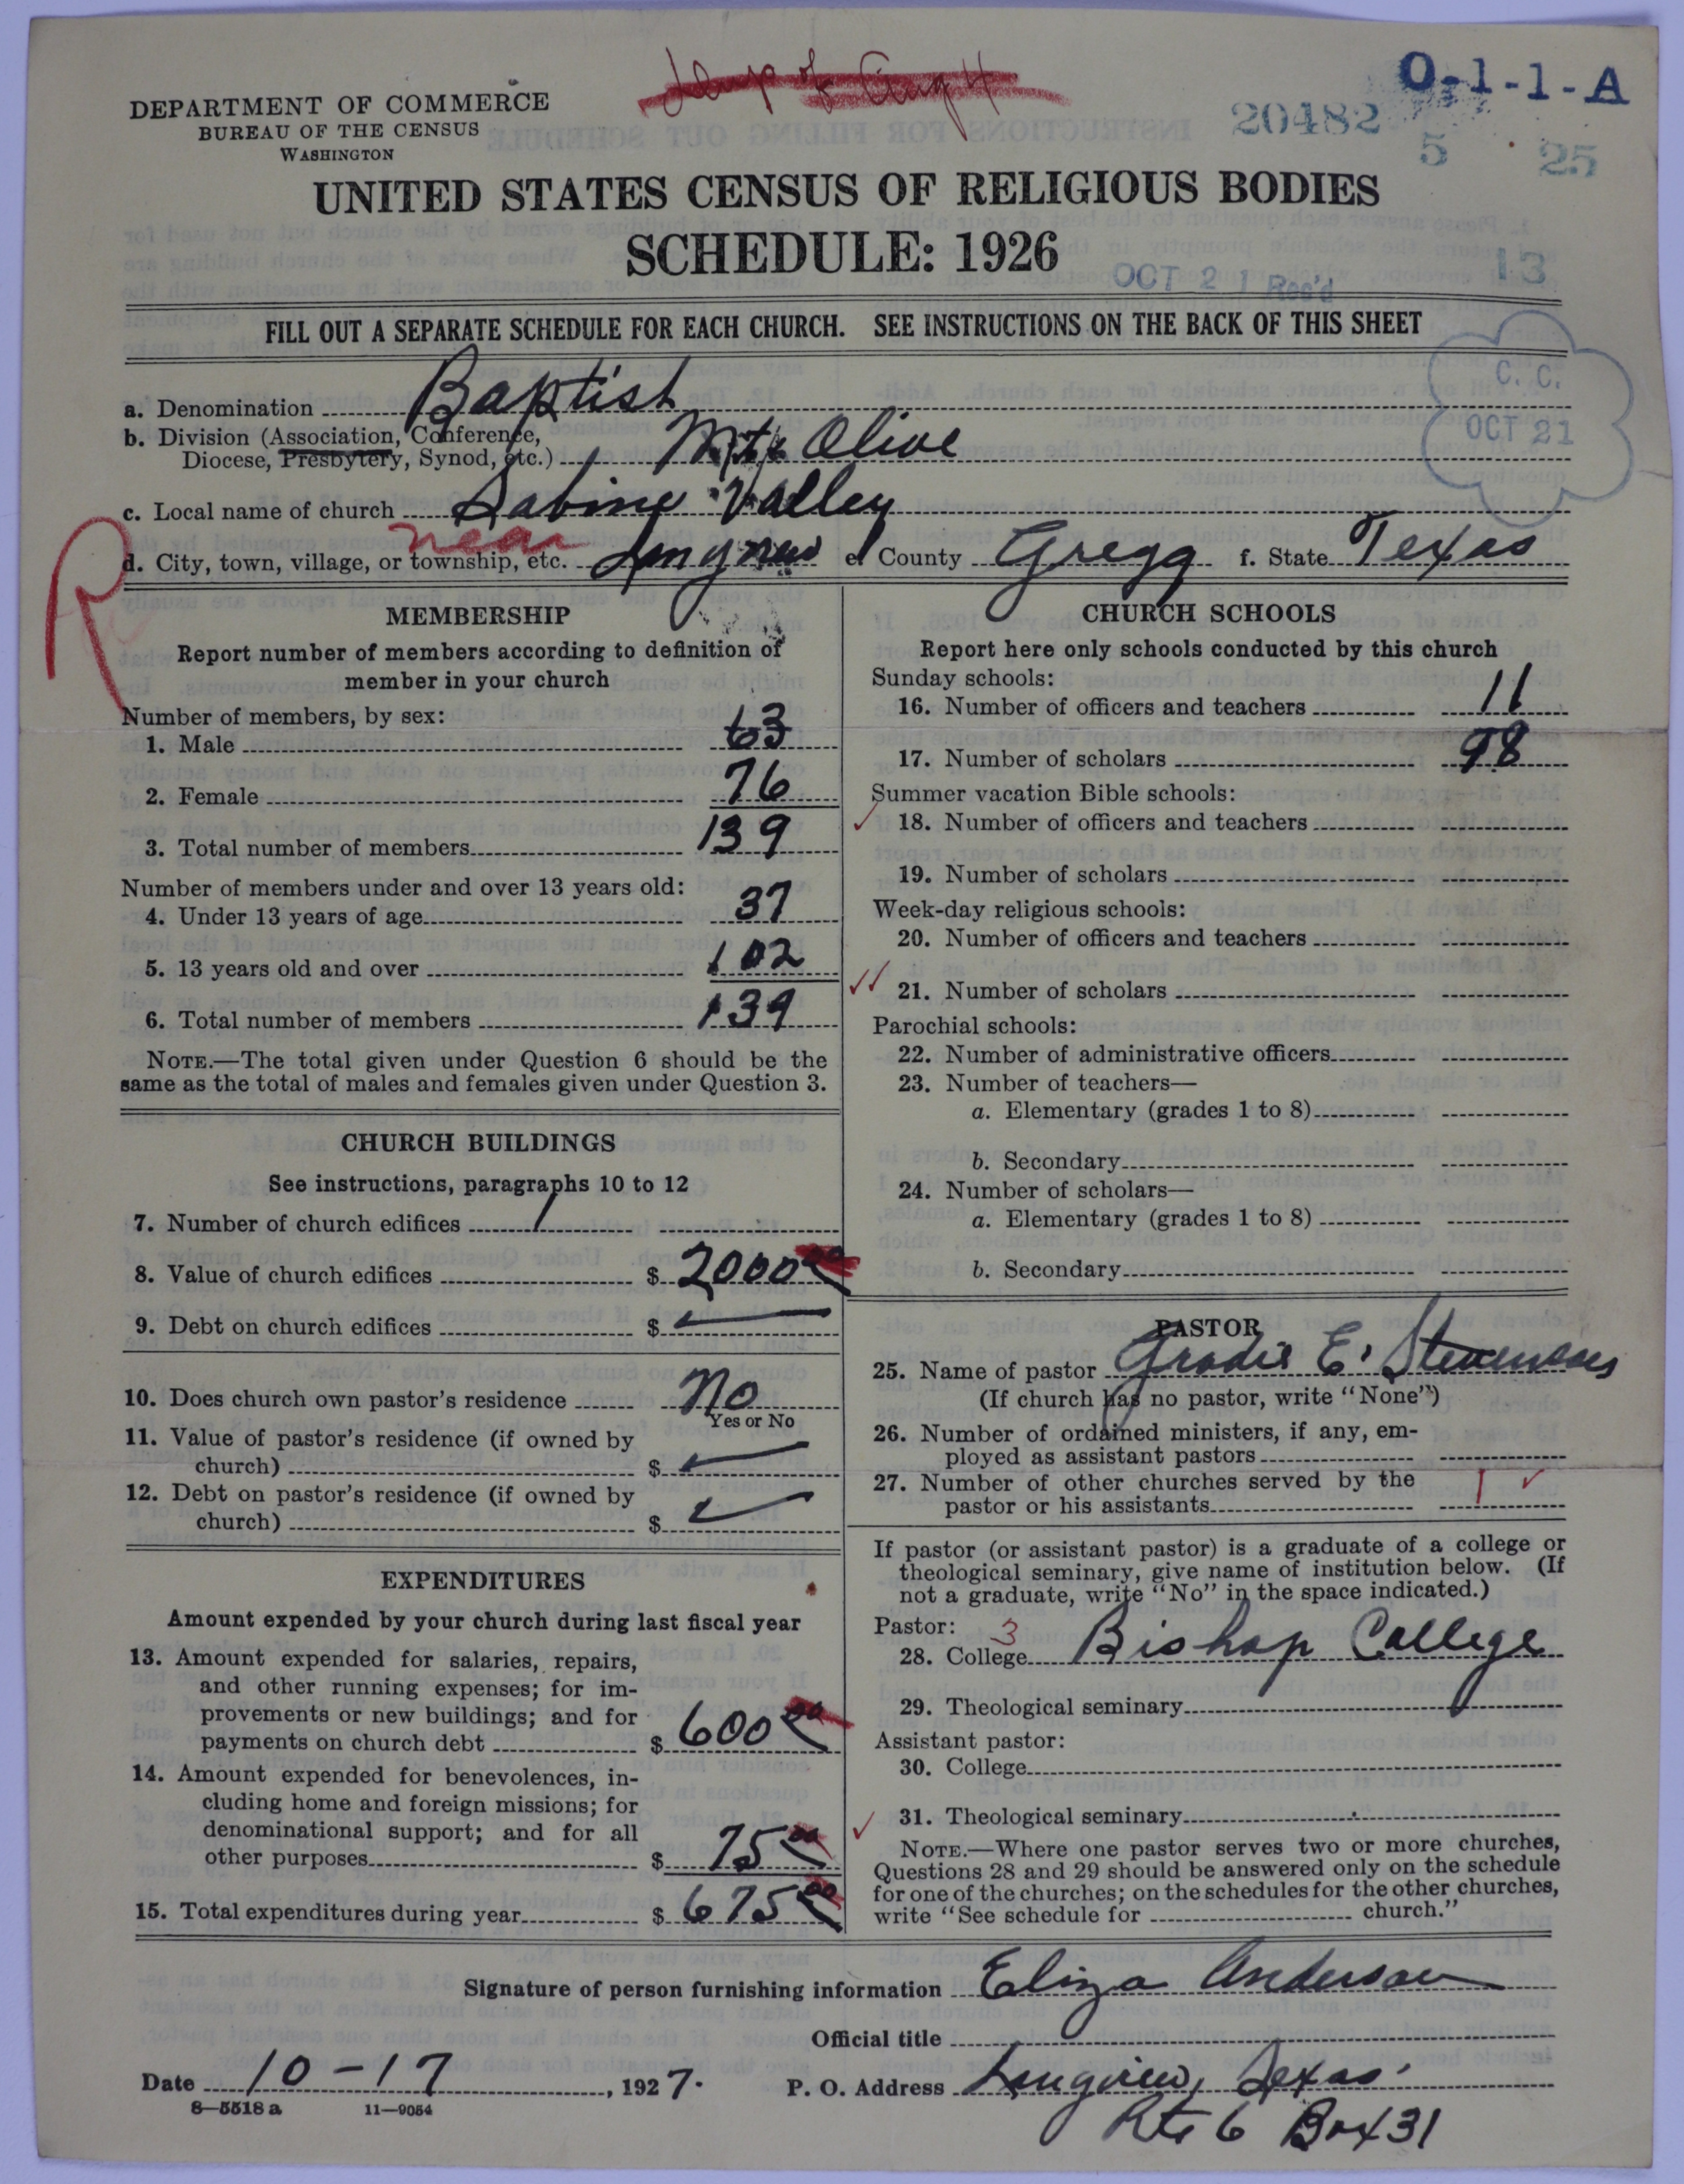 O-1-1-A
DEPARTMENT OF COMMERCE
BUREAU OF THE CENSUS
WASHINGTON
20482
5 25
UNITED STATES CENSUS OF RELIGIOUS BODIES
SCHEDULE: 1926
OCT 21 Rec'd 13
FILL OUT A SEPARATE SCHEDULE FOR EACH CHURCH. SEE INSTRUCTIONS ON THE BACK OF THIS SHEET
C. C.
OCT 21
a. Denomination Baptist
b. Division (Association, Conference,
Diocese, Presbytery, Synod, etc.) Mt. Olive
c. Local name of church Sabine Valley
near
d. City, town, village, or township, etc. Longview e. County Gregg f. State Texas
R
MEMBERSHIP
Report number of members according to definition of
member in your church
Number of members, by sex:
1. Male 63
2. Female 76
3. Total number of members 139
Number of members under and over 13 years old:
4. Under 13 years of age 37
5. 13 years old and over 102
6. Total number of members 139
NOTE.—The total given under Question 6 should be the
same as the total of males and females given under Question 3.
CHURCH BUILDINGS
See instructions, paragraphs 10 to 12
7. Number of church edifices 1
8. Value of church edifices $ 2000 00
9. Debt on church edifices $
10. Does church own pastor's residence No
Yes or No
11. Value of pastor's residence (if owned by
church) $
12. Debt on pastor's residence (if owned by
church) $
EXPENDITURES
Amount expended by your church during last fiscal year
13. Amount expended for salaries, repairs,
and other running expenses; for im-
provements or new buildings; and for
payments on church debt $ 600 00
14. Amount expended for benevolences, in-
cluding home and foreign missions; for
denominational support; and for all
other purposes $ 75 00
15. Total expenditures during year $ 675 00
CHURCH SCHOOLS
Report here only schools conducted by this church
Sunday schools:
16. Number of officers and teachers 11
17. Number of scholars 98
Summer vacation Bible schools:
18. Number of officers and teachers
19. Number of scholars
Week-day religious schools:
20. Number of officers and teachers
21. Number of scholars
Parochial schools:
22. Number of administrative officers
23. Number of teachers—
a. Elementary (grades 1 to 8)
b. Secondary
24. Number of scholars—
a. Elementary (grades 1 to 8)
b. Secondary
PASTOR
25. Name of pastor Gradie E. Stevenson
(If church has no pastor, write "None")
26. Number of ordained ministers, if any, em-
ployed as assistant pastors
27. Number of other churches served by the
pastor or his assistants 1
If pastor (or assistant pastor) is a graduate of a college or
theological seminary, give name of institution below. (If
not a graduate, write "No" in the space indicated.)
Pastor: 3
28. College Bishop College
29. Theological seminary
Assistant pastor:
30. College
31. Theological seminary
NOTE.—Where one pastor serves two or more churches,
Questions 28 and 29 should be answered only on the schedule
for one of the churches; on the schedules for the other churches,
write "See schedule for church."
Signature of person furnishing information Eliza Anderson
Official title
Date 10-17, 1927.
P. O. Address Longview, Texas.
Rte 6 Box 31
8—5518 a 11—9054